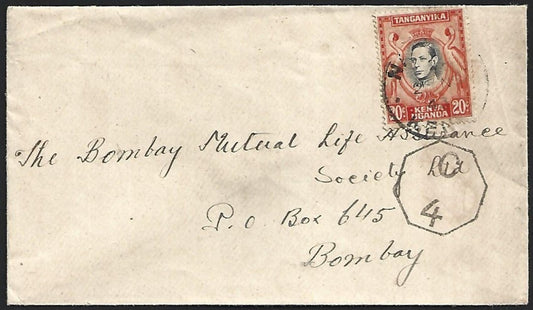 TANGANYIKA
20c KENYA UGANDA 20c
The Bombay Mutual Life Assurance
Society Ltd
P.O Box 645
Bombay
C
4